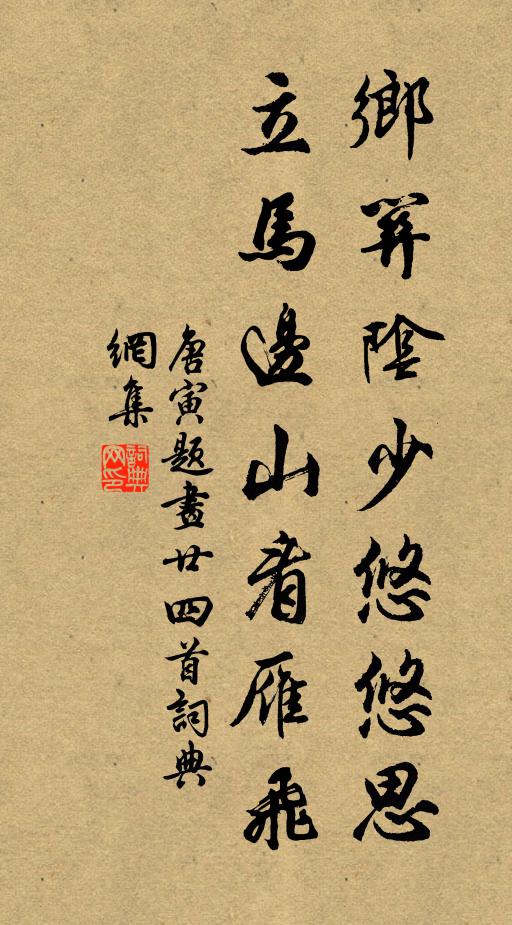 鄉關陰少悠悠思
立馬邊山看雁飛
唐寅題畫廿四首詞典
網集
詞典
网印